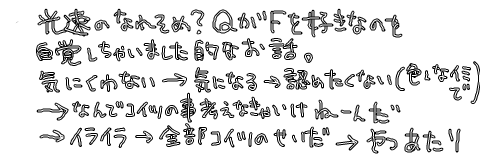 光速のなれそめ?QがFを好きなのを
自覚しちゃいました的なお話。
気にくわない→気になる→認めたくない(色んなイミで)
→なんでコイツの事考えなきゃいけねーんだ
→イライラ→全部コイツのせいだ→やつあたり